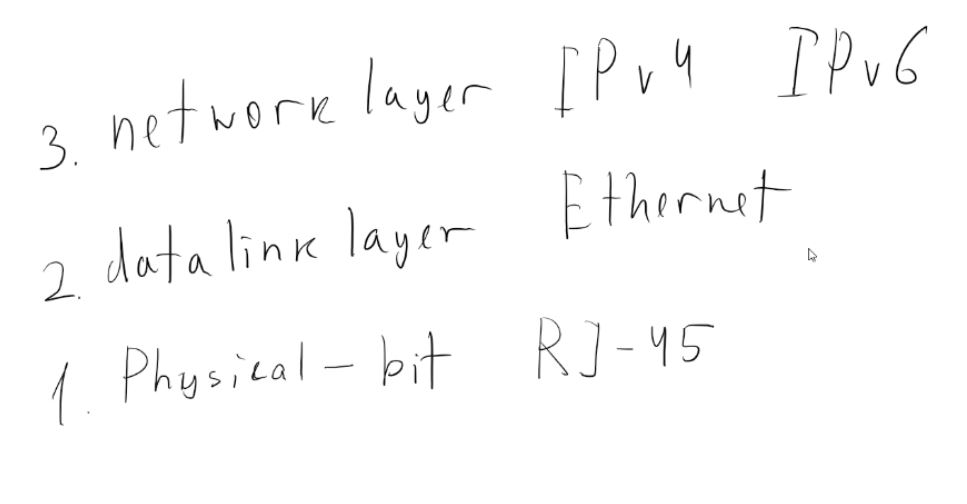 3. network layer IPv4 IPv6
2. data link layer Ethernet
1. Physical - bit RJ-45